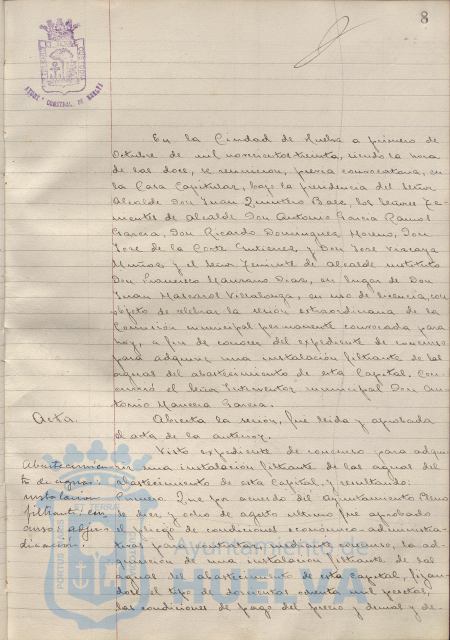 8
En la Ciudad de Huelva a primero de
Octubre de mil novecientos treinta, siendo la hora
de las doce, se reunieron, previa convocatoria, en
la Casa Capitular, bajo la presidencia del Señor
Alcalde Don Juan Quintero Baez, los Señores Te-
nientes de Alcalde Don Antonio Garcia Ramos
Garcia, Don Ricardo Dominguez Moreno, Don
José de la Corte Gutierrez, y Don José Vizcaya
Muñoz y el Señor Teniente de Alcalde sustituto
Don Francisco Manzano Diaz, en lugar de Don
Juan Mascarós Villalonga, en uso de licencia, con
objeto de celebrar la sesion extraordinaria de la
Comision municipal permanente convocada para
hoy, a fin de conocer del expediente de concurso
para adquirir una instalacion filtrante de las
aguas del abastecimiento de esta Capital. Con-
currió el Señor Interventor municipal Don An-
tonio Garcia.
Acta.
Abierta la sesion, fué leida y aprobada
el acta de la anterior.
Abastecimien-
to de aguas:
instalacion
filtrante: con
curso: adju-
dicacion:
Visto expediente de concurso para adqui-
rir una instalacion filtrante de las aguas del
abastecimiento de esta Capital, y resultando:
Primero. Que por acuerdo del Ayuntamiento Pleno
de diez y ocho de agosto ultimo fué aprobado
el pliego de condiciones económico-administra-
tivas para contratar, mediante concurso, la ad-
quisicion de una instalacion filtrante de las
aguas del abastecimiento de esta Capital, fijan-
dose el tipo de doscientas ochenta mil pesetas,
las condiciones de pago del precio y demas y de-
Ayuntamiento de
HUELVA